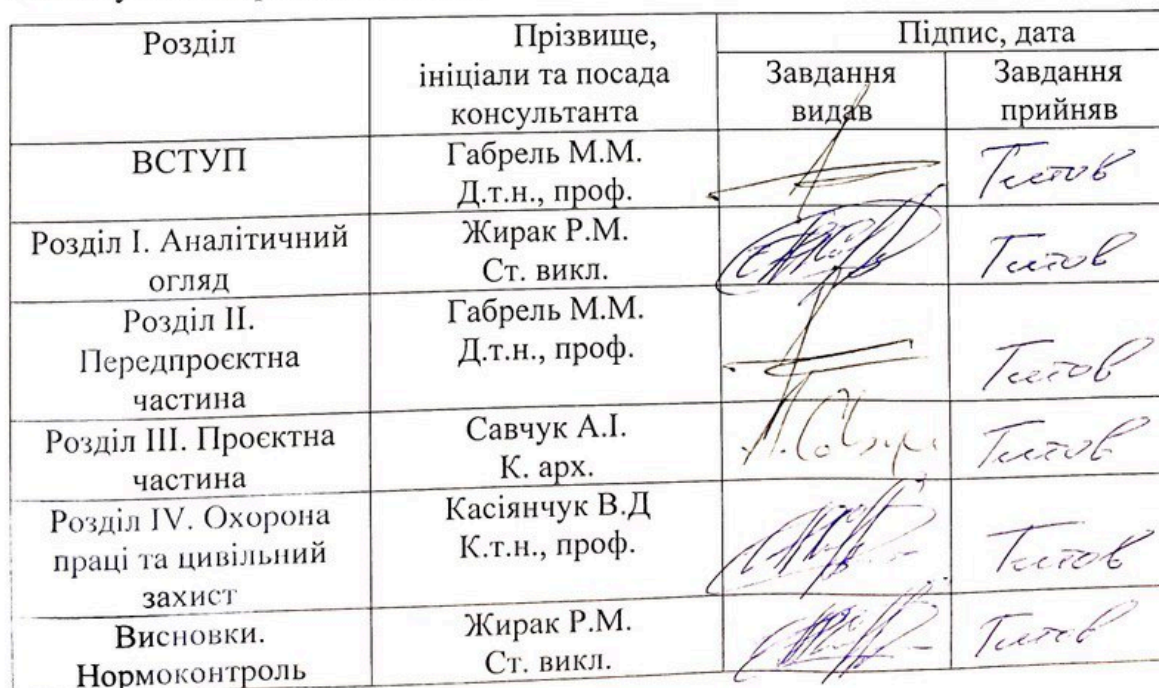 Розділ
Прізвище,
ініціали та посада
консультанта
Підпис, дата
Завдання
видав
Завдання
прийняв
ВСТУП
Габрель М.М.
Д.т.н., проф.
Розділ І. Аналітичний
огляд
Жирак Р.М.
Ст. викл.
Розділ ІІ.
Передпроєктна
частина
Габрель М.М.
Д.т.н., проф.
Розділ ІІІ. Проєктна
частина
Савчук А.І.
К. арх.
Розділ IV. Охорона
праці та цивільний
захист
Касіянчук В.Д
К.т.н., проф.
Висновки.
Нормоконтроль
Жирак Р.М.
Ст. викл.